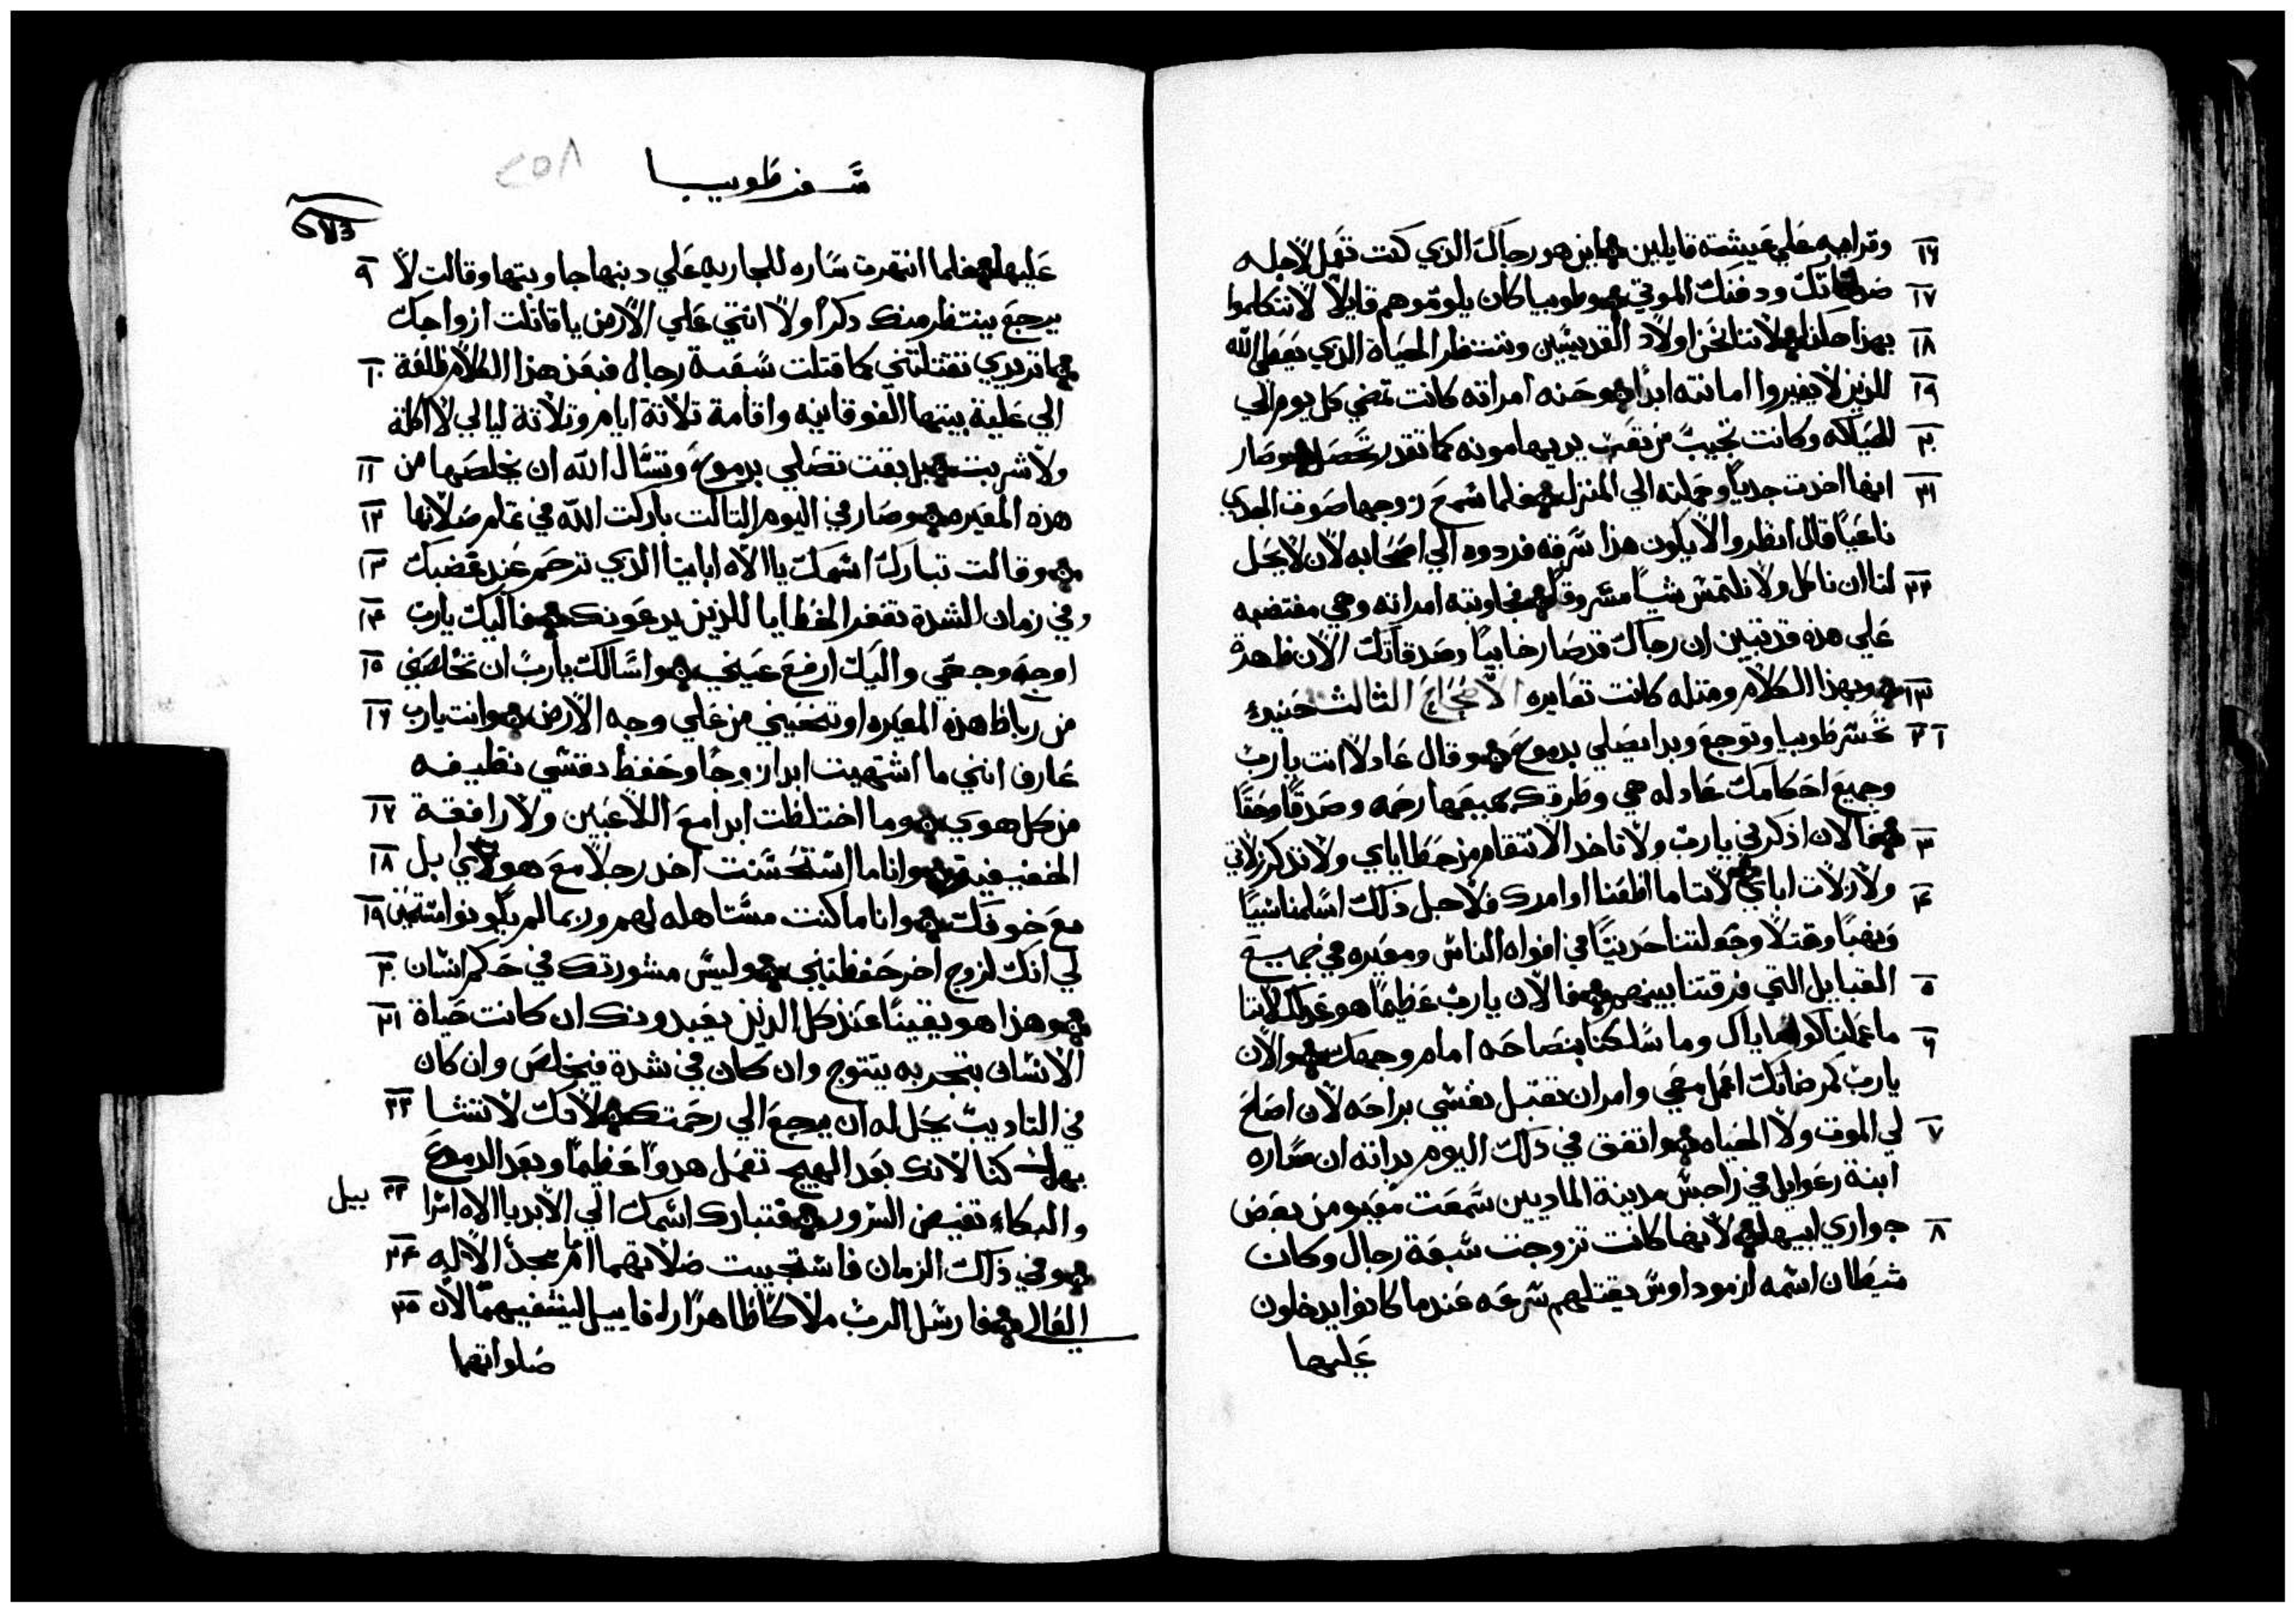 ١٦ وقرابيه علي عيشته قايلين اين هو رجاك الذي كنت تعمل لاجله
١٧ صدقاتك ودفنك الموتي وطوبيا كان يلومهم قايلا لا تتكلموا
١٨ بهذا هكذا لاننا نحن اولاد القديسين وننتظر الحياة الذي يعطي الله
١٩ للذين لا يغيروا امانته ابدا وحنه امراته كانت تمضي كل يوم الي
٢٠ الحياكه وكانت تجيب من تعب يديها مونه كما تقدر تحصل وصار
٢١ انها اخدت جديا وحملته الي المنزل فلما سمع زوجها صوت الجدي
ناعيا قال انظروا الا يكون هذا سرقه فردوه الي اصحابه لان لا يحل
٢٢ لنا ان ناكل ولا نلتمس شيا مسروقا فجاوبته امراته وهي مغتضبه
علي هذه قد تبين ان رجاك قد صار خايبا وصدقاتك الان ظاهرة
٢٣ وبهذا الكلام ومثله كانت تعايره الاصحاح الثالث حينيد
١ ٢ تحسر طوبيا وتوجع وبدا يصلي بدموع وقال عادلا انت يارب
وجميع احكامك عادله هي وطرقك جميعها رحمه وصدقا وحقا
٣ فالان اذكرني يارب ولا تاخد الانتقام من خطاياي ولا تذكر زلاتي
٤ ولا زلات اباي لاننا ما اطعنا اوامرك فلاجل ذلك اسلمنا سبيا
ونهبا وقتلا وجعلتنا حديثا في افواه الناس ومعيره في جميع
٥ القبايل التي فرقتنا بينهم فالان يارب عظيما هو عدلك لاننا
٦ ما عملنا كوصاياك وما سلكنا بنصاحه امام وجهك والان
يارب كمرضاتك اعمل معي وامر ان تقبل نفسي براحه لان اصلح
٧ لي الموت ولا الحياه واتفق في ذلك اليوم بداته ان ساره
ابنة رعوايل في راجس مدينة الماديين سمعت معيره من بعض
٨ جواري ابيها لانها كانت تزوجت سبعة رجال وكان
شيطان اسمه ازموداوس يقتلهم سرعه عندما كانوا يدخلون
عليها
سفر طوبيا
٢٥٨
عليها فلما انتهرت ساره للجاريه علي دينها جاوبتها وقالت لا ٩
يرجع ينتظر منك دكرا ولا انتي علي الارض يا قاتلت ازواجك
اتريدي تقتلتني كما قتلت سبعة رجال فبعد هذا الكلام طلعة ١٠
الي علية بيتها الفوقانيه واقامة تلاتة ايام وتلاتة ليالي لا اكلة
ولا شربت بل بقت تصلي بدموع وتسال الله ان يخلصها من ١١
هذه المعيره وصار في اليوم التالت باركت الله في تمام صلاتها ١٢
وقالت تبارك اسمك يا الاه ابايينا الذي ترحم عند غضبك ١٣
وفي زمان الشدة تغفر الخطايا للذين يدعونك فاليك يارب ١٤
اوجه وجهي واليك ارفع عيني واسالك يارب ان تخلصني ١٥
من رباط هذه المعيره او تنحيني من علي وجه الارض وانت يارب ١٦
عارف انني ما اشتهيت ابدا زوجا وحفظ نفسي نظيفه
من كل هوي وما اختلطت ابدا مع اللاعبين ولا رافقة ١٧
الخفيفين وانا ما استحسنت اخد رجلا مع هولاي بل ١٨
مع خوفك وانا ما كنت مستاهله لهم وربما لم يكونوا مستحقين ١٩
لي انك لزوج اخر حفظتني وليس مشورتك في حكم انسان ٢٠
وهذا هو يقينا عند كل الذين يعبدونك ان كانت حياة ٢١
الانسان بتجربه يتتوج وان كان في شدة فيخلص وان كان
في التاديب يحل له ان يرجع الي رحمتك لانك لا تتشا ٢٢
بهلاكنا لانك بعد الهيج تعمل هدوا عظيما وبعد الدموع
والبكاء تفيض السرور فتبارك اسمك الي الابد يا الاه اسرا ٢٣ ييل
وفي ذلك الزمان فاستجيبت صلاتهما امام مجد الاله ٢٤
العالي فارسل الرب ملاكا طاهرا رافاييل ليشفيهما لان ٢٥
صلواتهما